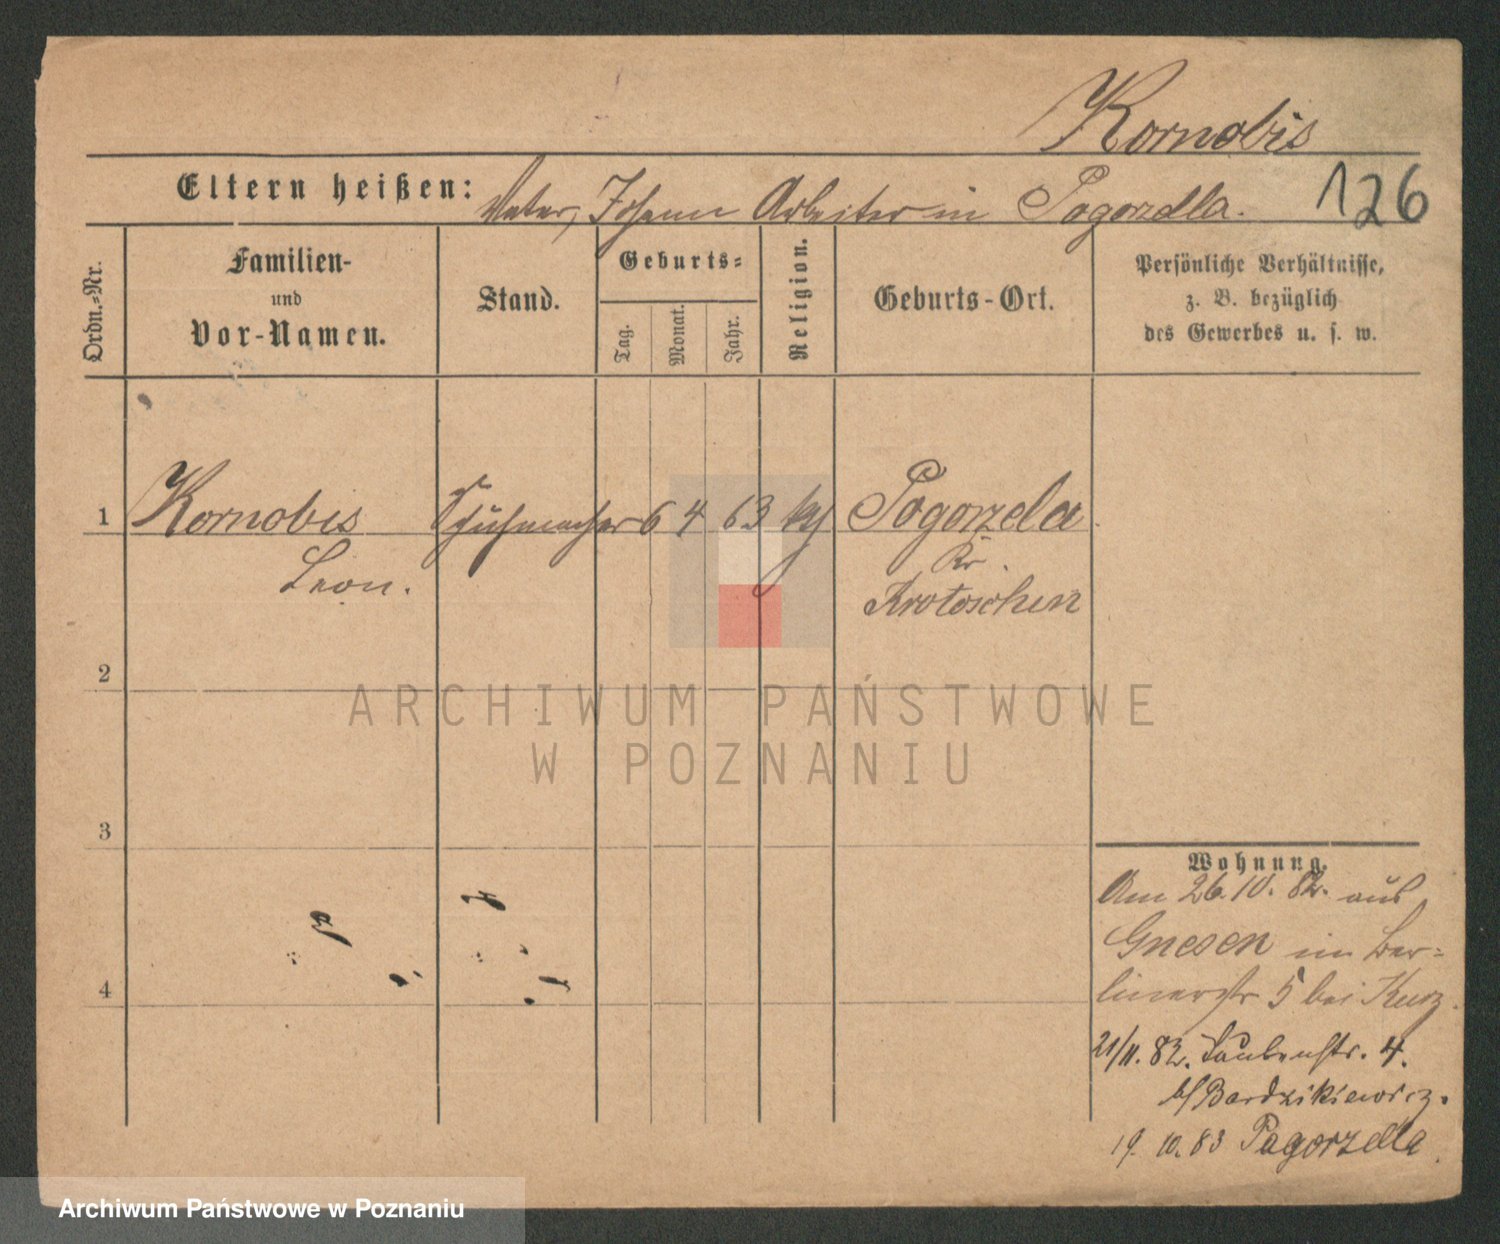 Kornobis
Eltern heißen: Vater, Johann Arbeiter in Pogorzella.
126
Ordn.-Nr.
Familien-
und
Vor-Namen.
Stand.
Geburts-
Tag.
Monat.
Jahr.
Religion.
Geburts-Ort.
Persönliche Verhältnisse,
z. B. bezüglich
des Gewerbes u. s. w.
1 Kornobis Schuhmacher 6 4 63 kg Pogorzela
Leon.
Kr.
Krotoschen
2
3
4
ARCHIWUM PAŃSTWOWE
W POZNANIU
Wohnung.
Am 26.10.82. aus
Gnesen im Ber=
linerstr 5 bei Kurz.
21/11.82. Taubenstr. 4.
b/Bardzikiewicz.
19.10.83 Pagorzella
Archiwum Państwowe w Poznaniu